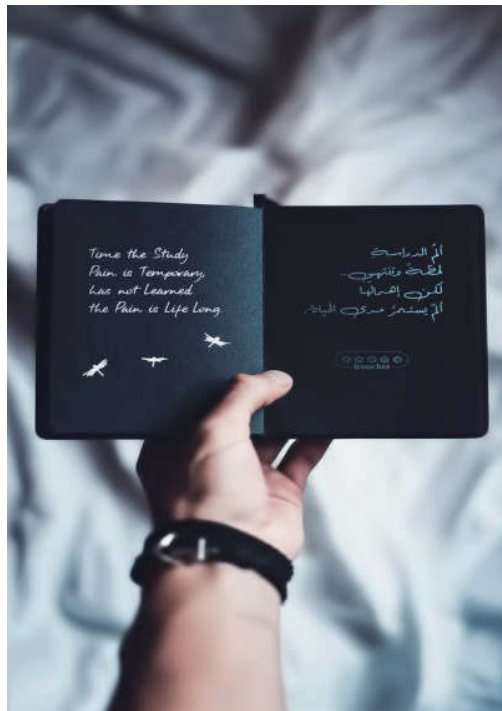 Time the Study
Pain is Temporary,
has not Learned
the Pain is Life Long.
ألمُ الدراسة
لحظة وتنتهي
لكن إهمالها
ألمٌ يستمرُ مدى الحياة